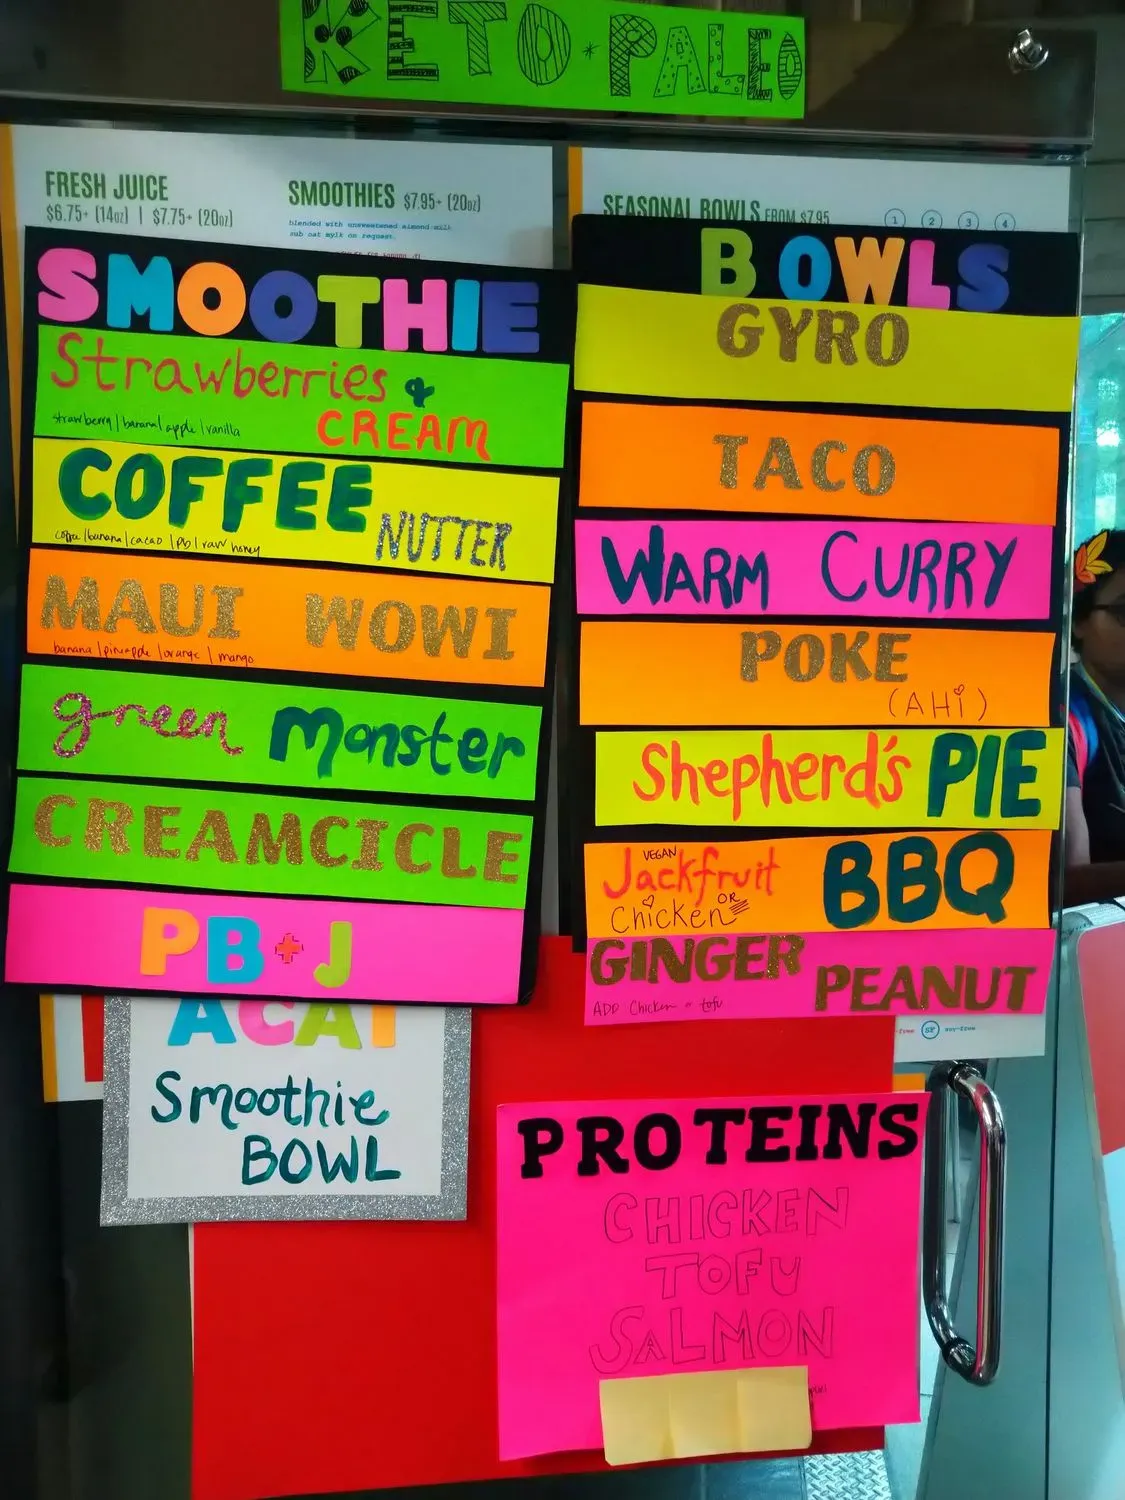 KETO * PALEO
FRESH JUICE
$6.75+ (14oz) | $7.75+ (20oz)
SMOOTHIES $7.95+ (20oz)
blended with unsweetened almond milk
sub oat mylk on request.
SEASONAL BOWLS FROM $7.95
1 2 3 4
SMOOTHIE
Strawberries &
CREAM
strawberry | banana | apple | vanilla
COFFEE
NUTTER
coffee | banana | cacao | pb | raw honey
MAUI WOWI
banana | pineapple | orange | mango
green Monster
CREAMCICLE
PB+J
ACAI
Smoothie
BOWL
BOWLS
GYRO
TACO
WARM CURRY
POKE
(AHi)
Shepherd's PIE
VEGAN
Jackfruit BBQ
OR
Chicken
GINGER PEANUT
ADD Chicken or tofu
SF soy-free
PROTEINS
CHICKEN
TOFU
SALMON